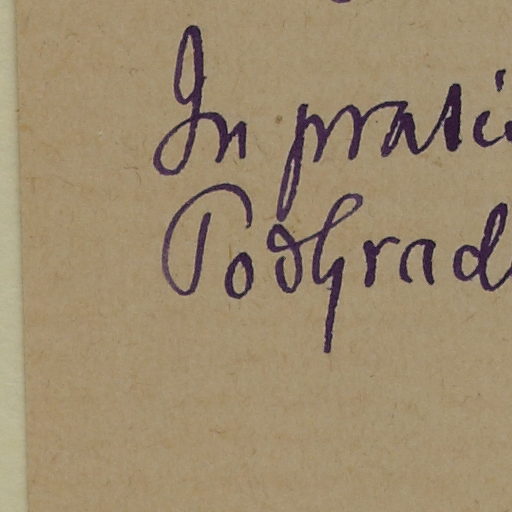 In prati
Podgrad